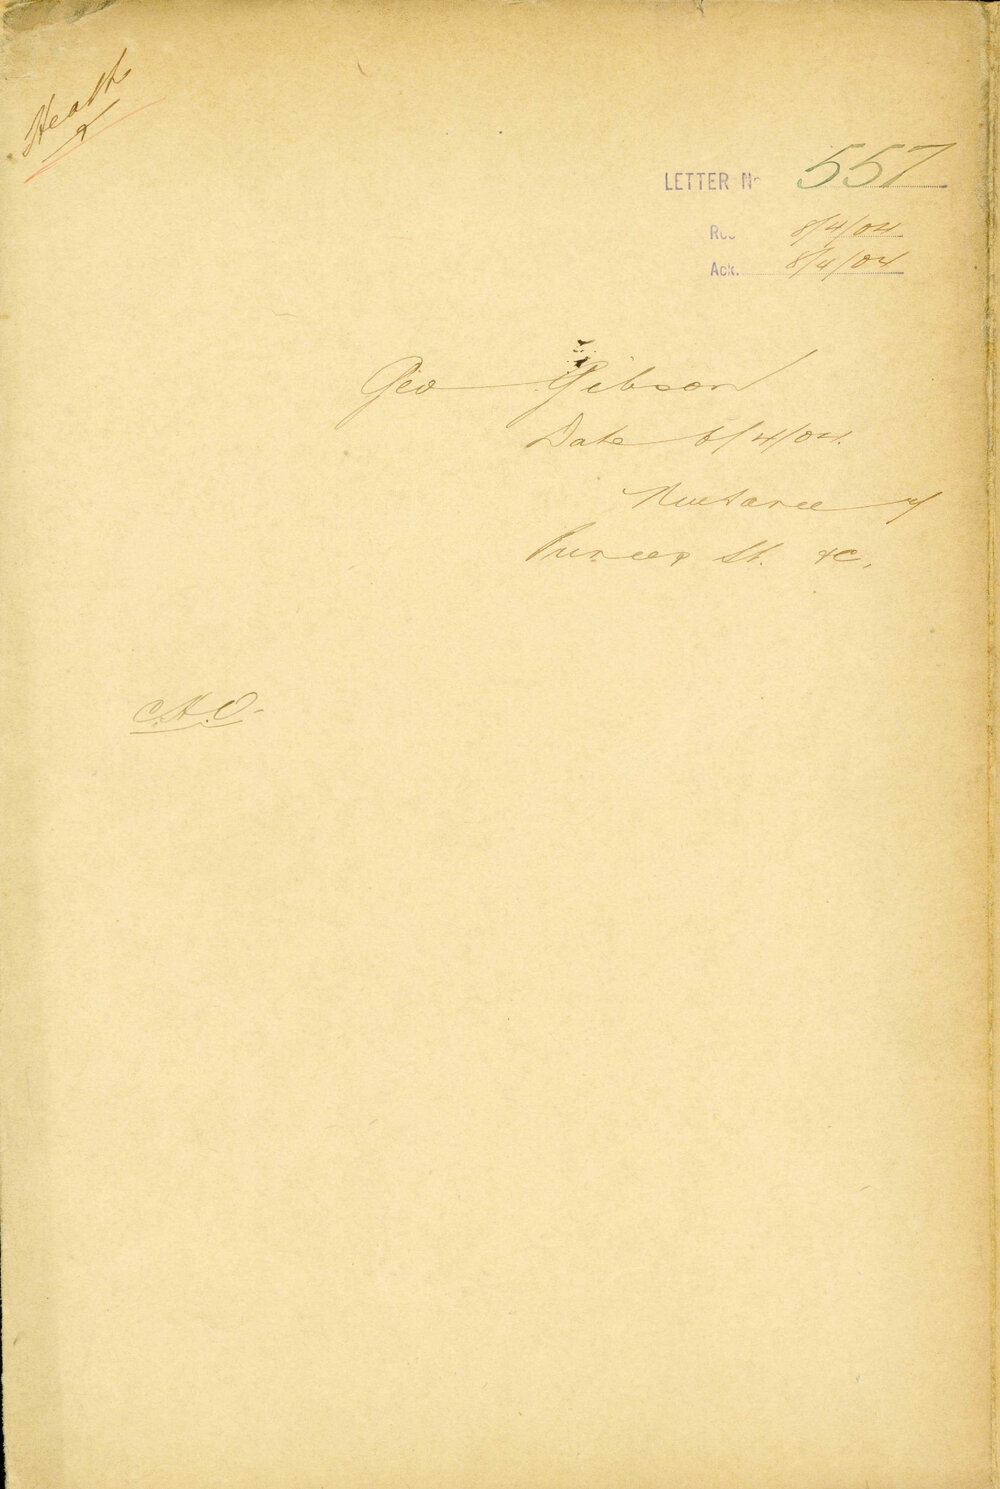 Health
LETTER No 557
Rec 8/4/04
Ack. 8/4/04
Geo Gibson
Date 6/4/04.
Nuisance
Princes St. &c.
C.H.O.